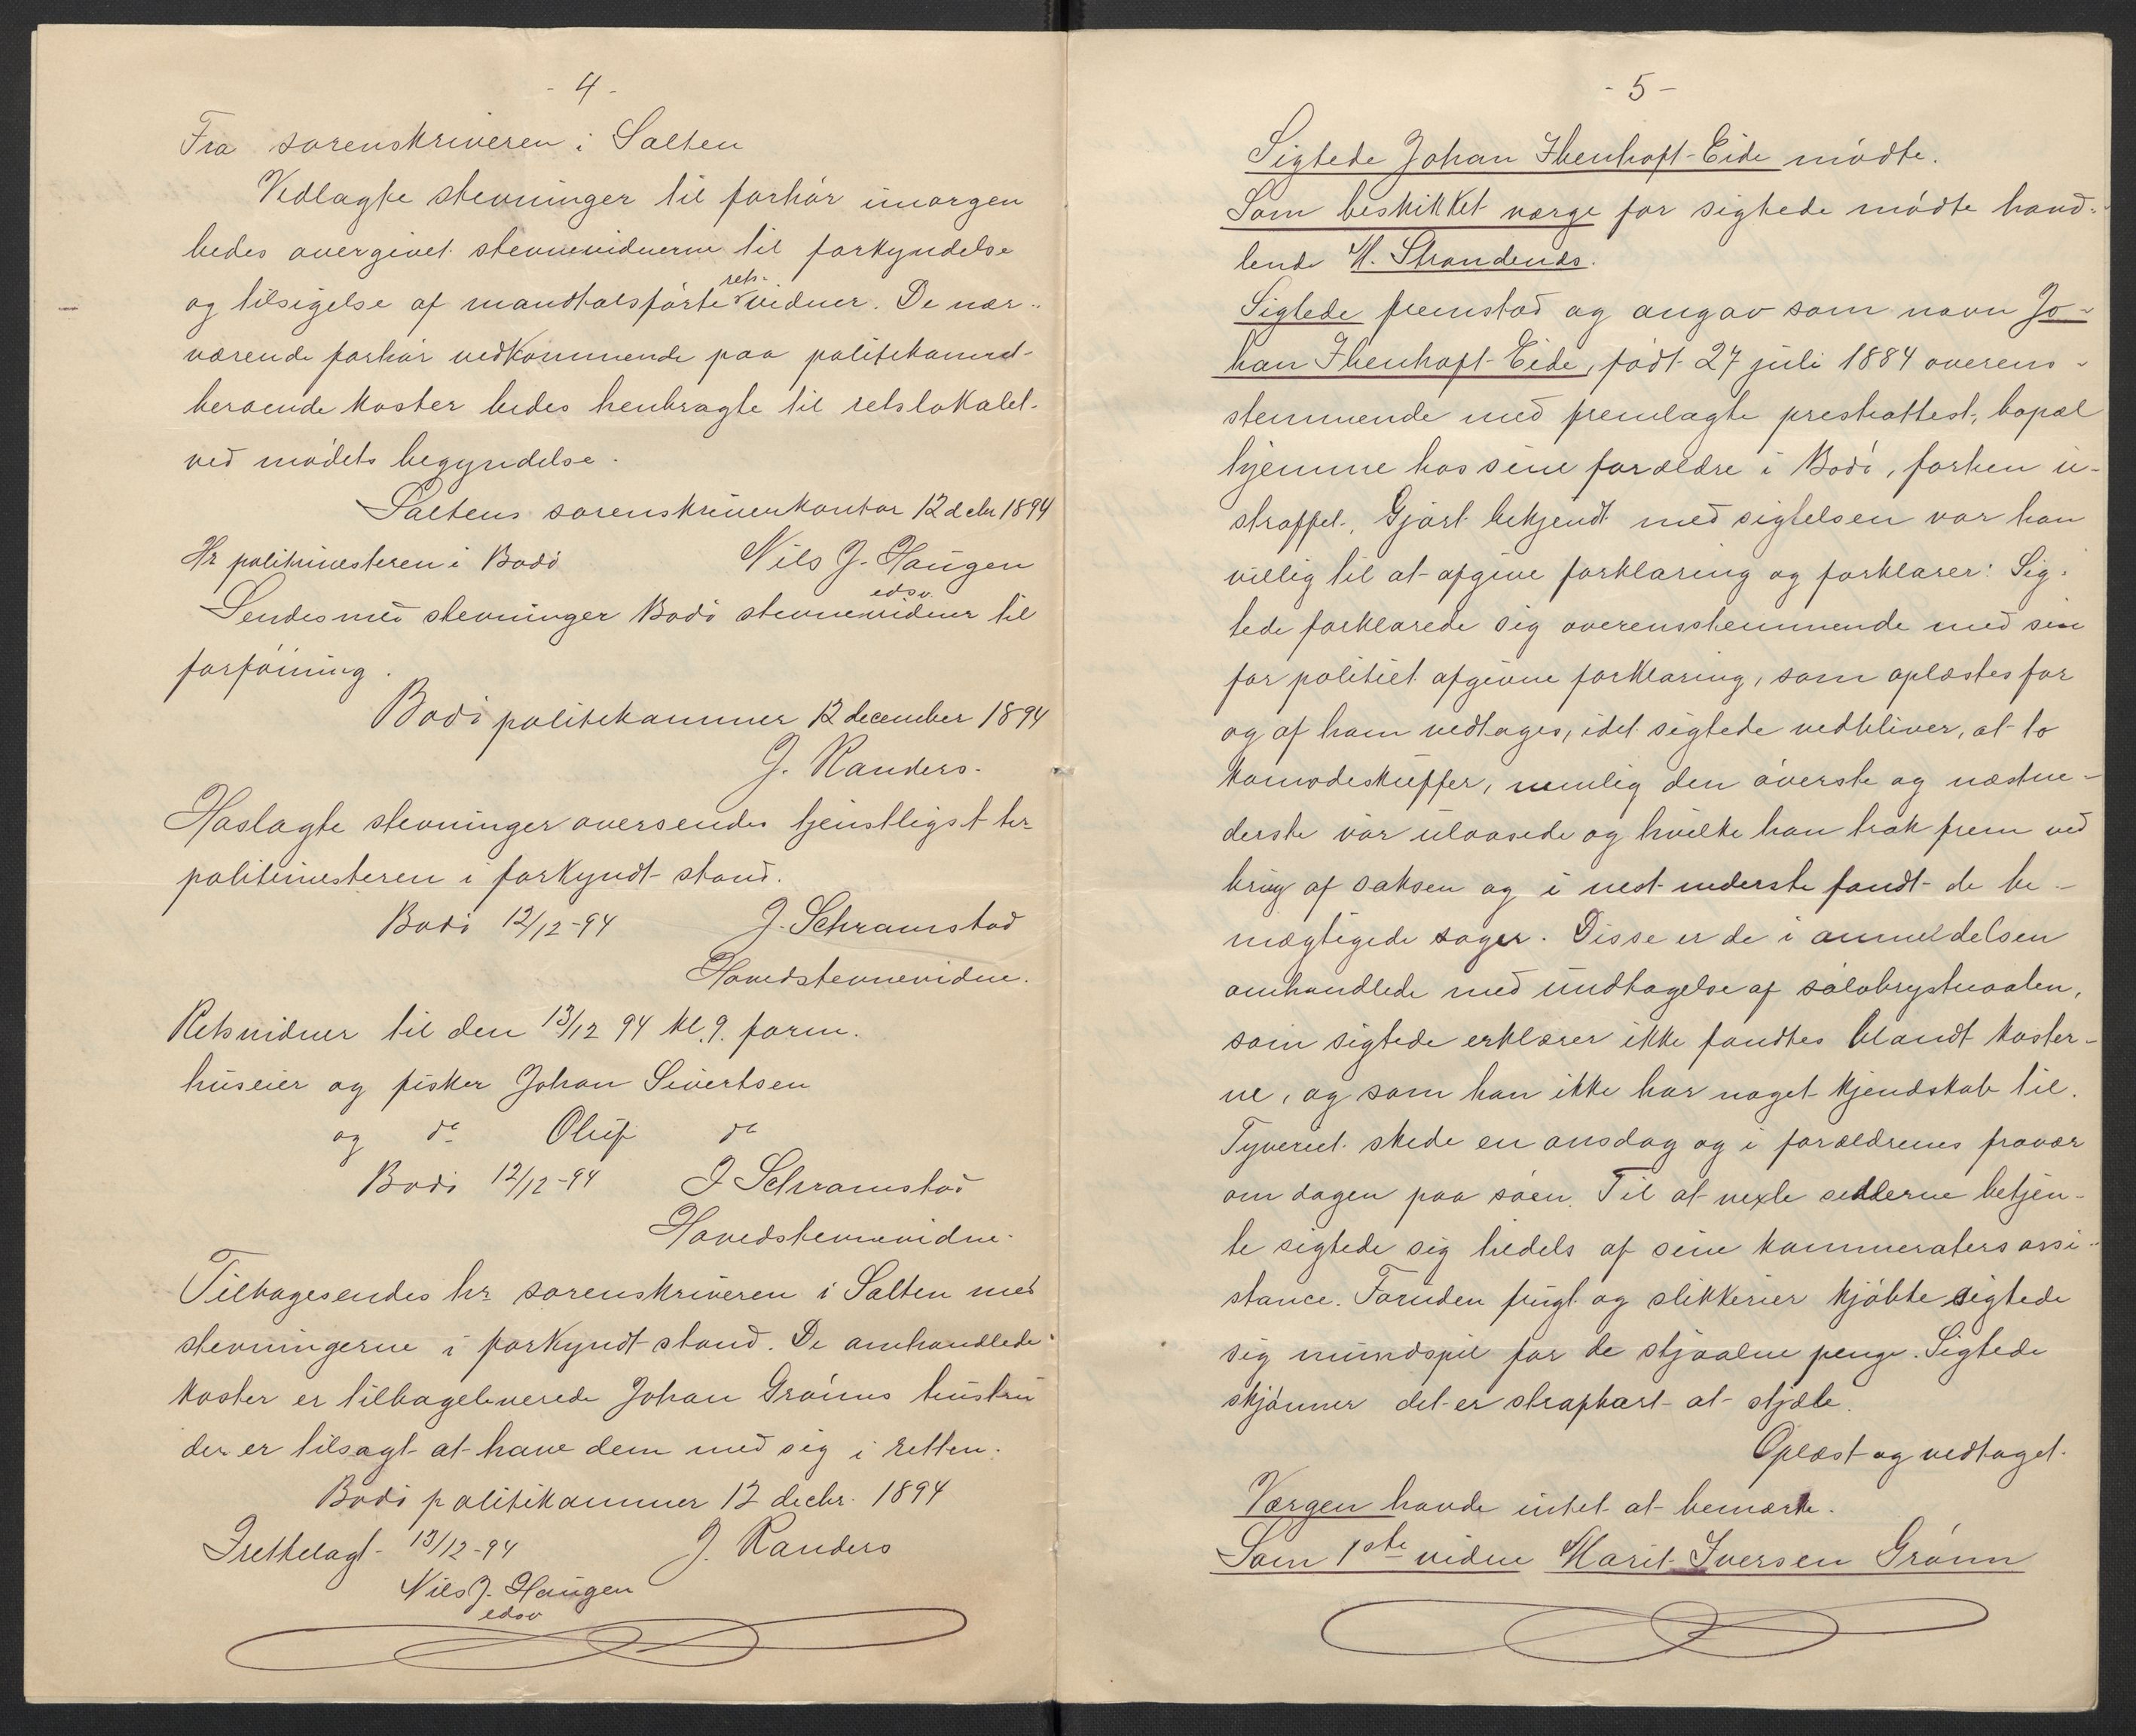 - 4 -
Fra sorenskriveren i Salten
Vedlagte stevninger til forhör imorgen
bedes overgivet stevnevidnerne til forkyndelse
og tilsigelse af mandtalsförte rets-vidner. De nær-
værende forhör vedkommende paa politikamret
beroende koster bedes henbragte til retslokalet
ved mödets begyndelse.
Saltens sorenskriverkontor 12 decbr 1894
Hr politimesteren i Bodö Nils J. Haugen
edsv.
Sendes med stevninger Bodö stevnevidner til
forföining.
Bodö politikammer 12 december 1894
J. Randers.
Hoslagte stevninger oversendes tjenstligst hr
politimesteren i forkyndt stand.
Bodö 12/12-94 J. Schramstad
Hovedstevnevidne.
Retsvidner til den 13/12 94 kl. 9. form.
huseier og fisker Johan Sivertsen
og do Oluf do
Bodö 12/12-94 J Schramstad
Hovedstevnevidne.
Tilbagesendes hr sorenskriveren i Salten med
stevningerne i forkyndt stand. De omhandlede
koster er tilbageleverede Johan Grönns hustru
der er tilsagt at have dem med sig i retten.
Bodö politikammer 12 decbr. 1894
Irettelagt 13/12-94 J. Randers
Nils J. Haugen
edsv
- 5 -
Sigtede Johan Ibenhoft Eide mödte.
Som beskikket værge for sigtede mödte hand-
lende M. Strandenæs.
Sigtede fremstod og angav som navn Jo-
han Ibenhoft Eide, födt 27 juli 1884 overens-
stemmende med fremlagte presteattest, bopæl
hjemme hos sine forældre i Bodö, forhen u-
straffet. Gjort bekjendt med sigtelsen var han
villig til at afgive forklaring og forklarer: Sig-
tede forklarede sig overensstemmende med sin
for politiet afgivne forklaring, som oplæstes for
og af ham vedtages, idet sigtede vedbliver, at to
komodeskuffer, nemlig den överste og næstne-
derste var ulaasede og hvilke han trak frem ved
brug af saksen og i nest nederste fandt de be-
mægtigede sager. Disse er de i anmeldelsen
omhandlede med undtagelse af sölvbrystnaalen,
som sigtede erklærer ikke fandtes blandt koster-
ne, og som han ikke har noget kjendskab til.
Tyveriet skede en onsdag og i forældrenes fravær
om dagen paa söen. Til at vexle sedlerne betjen-
te sigtede sig tildels af sine kammeraters assi-
stance. Foruden frugt og slikkerier kjöbte sigtede
sig mundspil for de stjaalne penge. Sigtede
skjönner det er strafbart at stjæle.
Oplæst og vedtaget.
Værgen havde intet at bemærke.
Som 1ste vidne Marit Iversen Grönn